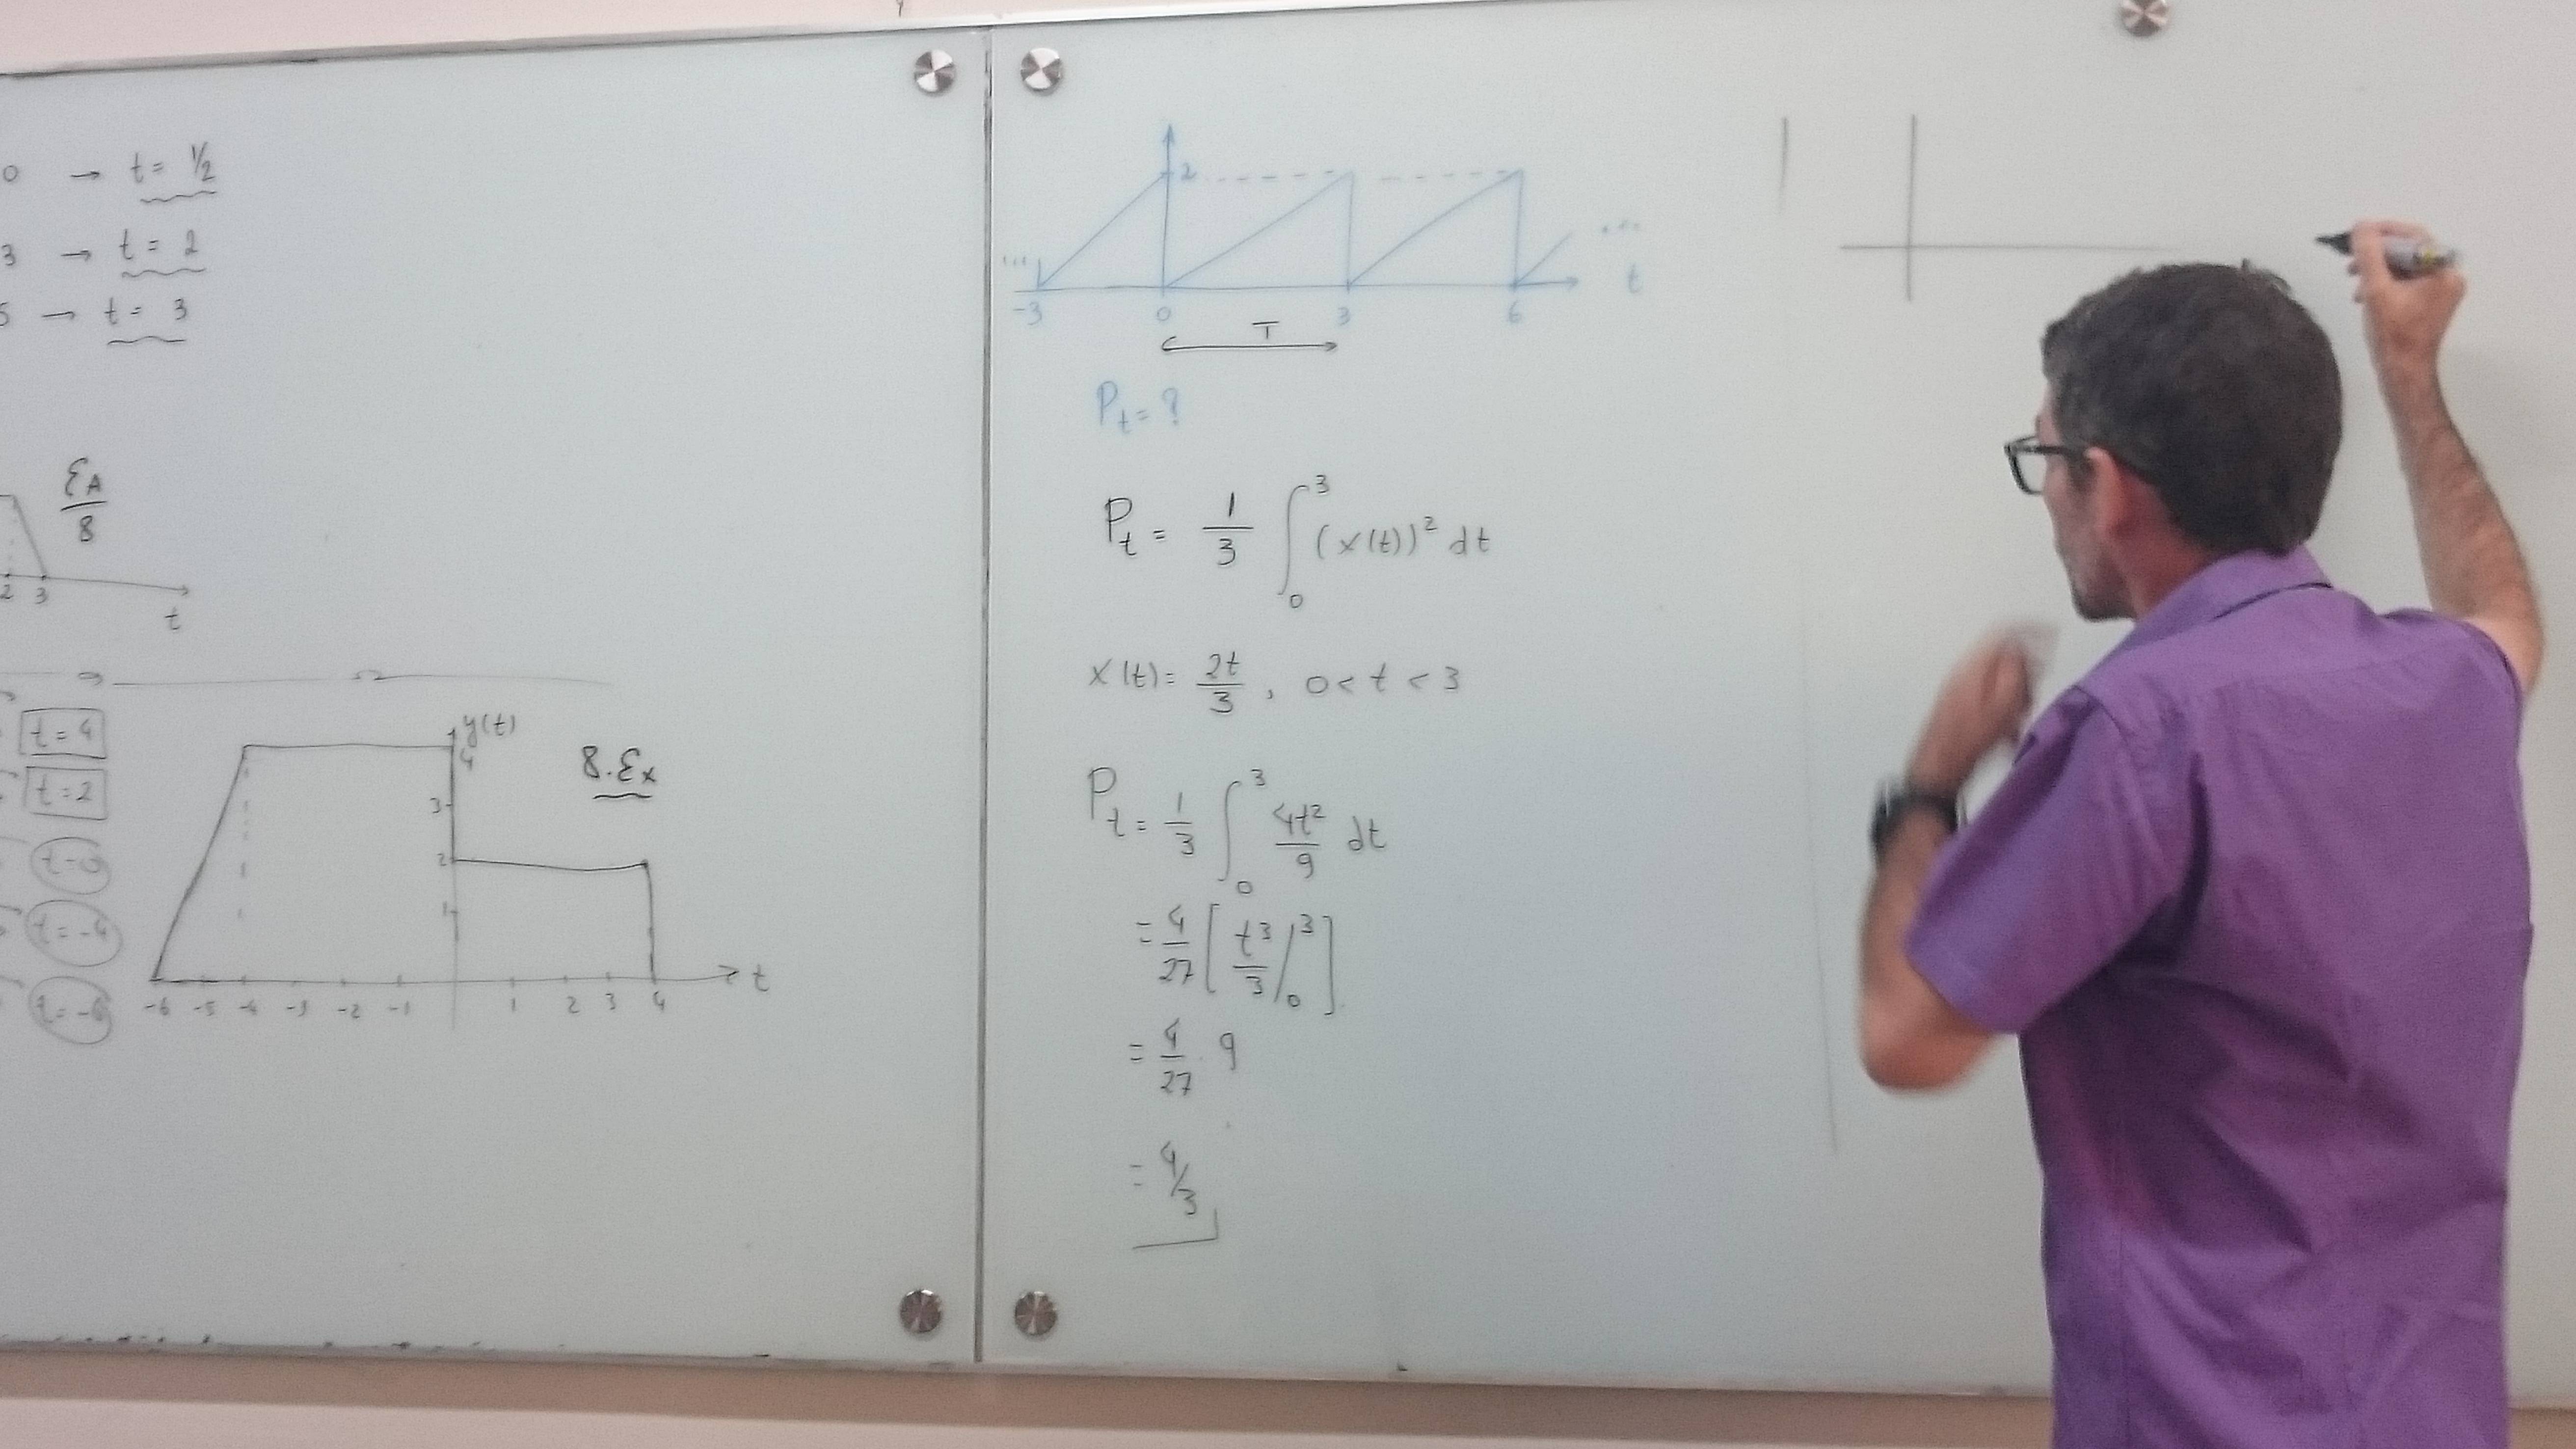 0 → t = 1/2
3 → t = 2
5 → t = 3
εA/8
2 3
t
t = 4
t = 2
t = 0
t = -4
t = -6
y(t)
4
3
2
1
8.εx
-6 -5 -4 -3 -2 -1 1 2 3 4 t
2
... ...
-3 0 3 6 t
T
Pt = ?
Pt = 1/3 ∫₀³ (x(t))² dt
x(t) = 2t/3 , 0 < t < 3
Pt = 1/3 ∫₀³ 4t²/9 dt
= 4/27 [ t³/3 /₀³ ]
= 4/27 . 9
= 4/3